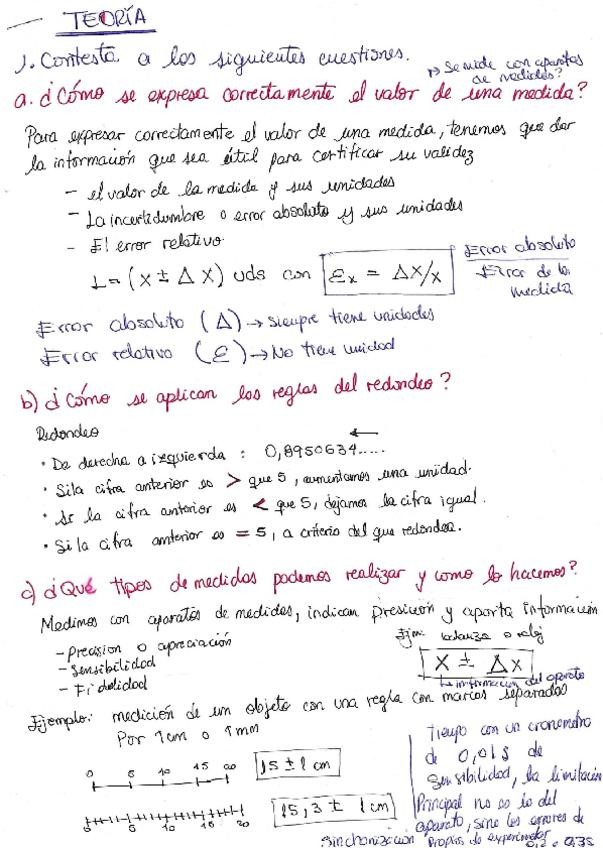 TEORÍA
1. Contesta a los siguientes cuestiones.
↳ Se mide con aparatos
de medidas?
a. ¿Cómo se expresa correctamente el valor de una medida?
Para expresar correctamente el valor de una medida, tenemos que dar
la información que sea útil para certificar su validez
- el valor de la medida y sus unidades
- La incertidumbre o error absoluto y sus unidades
- El error relativo
L = (X ± Δ X) uds con εx = Δx/x
Error absoluto
Error de la
medida
Error absoluto (Δ) → siempre tiene unidades
Error relativo (ε) → No tiene unidad
b) ¿Cómo se aplican las reglas del redondeo?
Redondeo
• De derecha a izquierda : 0,8950634.....
• Si la cifra anterior es > que 5, aumentamos una unidad.
• Si la cifra anterior es < que 5, dejamos la cifra igual.
• Si la cifra anterior es = 5, a criterio del que redondea.
c) ¿Qué tipos de medidas podemos realizar y como lo hacemos?
Medimos con aparatos de medidas, indican presición y aporta información
- Precisión o apreciación
- Sensibilidad
- Fidelidad
Ejm: balanza o reloj
X ± Δx
↳ información del aparato
Ejemplo: medición de un objeto con una regla con marcas separadas
Por 1cm o 1mm
0 5 10 15 20
15 ± 1 cm
0 5 10 15 20
15,3 ± 1 cm
Tiempo con un cronometro
de 0,01s de
Sensibilidad, la limitación
Principal no es la del
aparato, sino los errores de
Sinchronización propios de experimentador
0,2 o 0,3s